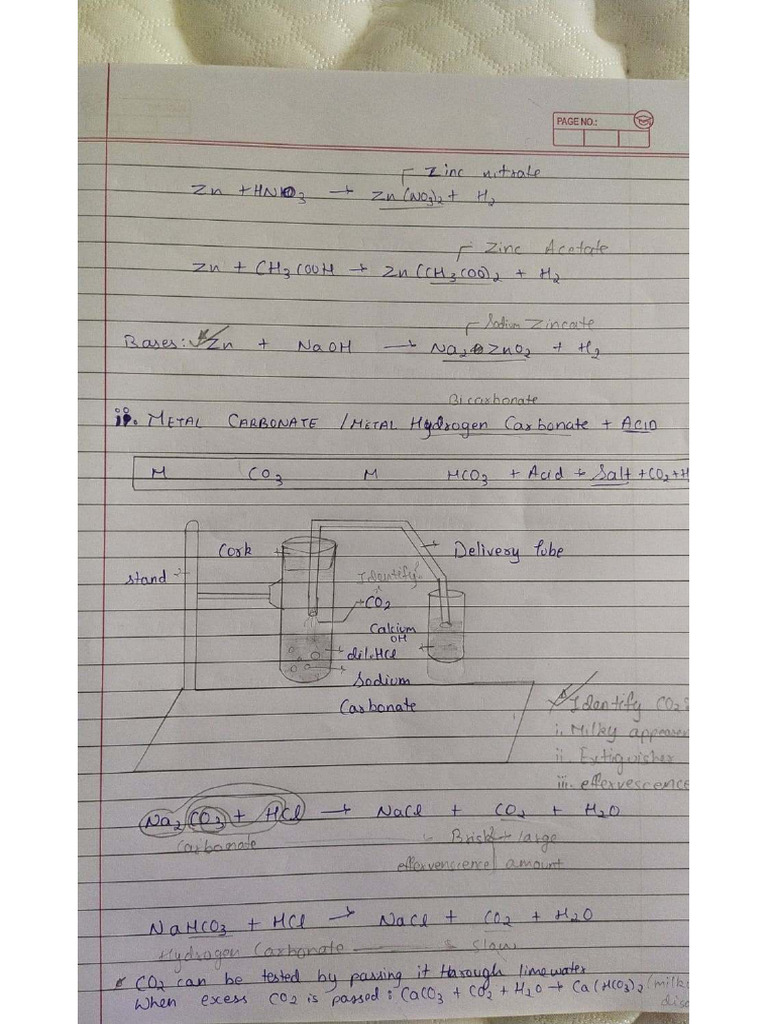 PAGE NO.:
Zinc nitrate
Zn + HNO3 → Zn(NO3)2 + H2
Zinc Acetate
Zn + CH3COOH → Zn(CH3COO)2 + H2
Sodium Zincate
Bases: Zn + NaOH → Na2ZnO2 + H2
Bicarbonate
ii. METAL CARBONATE / METAL Hydrogen Carbonate + ACID
M CO3 M HCO3 + Acid → Salt + CO2 + H
Cork
Delivery tube
stand
Identify
CO2
Calcium
OH
dil. HCl
Sodium
Carbonate
Identify CO2
i. Milky
ii. Extinguisher
iii. effervescence
Na2CO3 + HCl → NaCl + CO2 + H2O
Carbonate Brisk + large
effervencience amount
NaHCO3 + HCl → NaCl + CO2 + H2O
Hydrogen Carbonate slow
CO2 can be tested by passing it through lime water
When excess CO2 is passed : CaCO3 + CO2 + H2O → Ca(HCO3)2